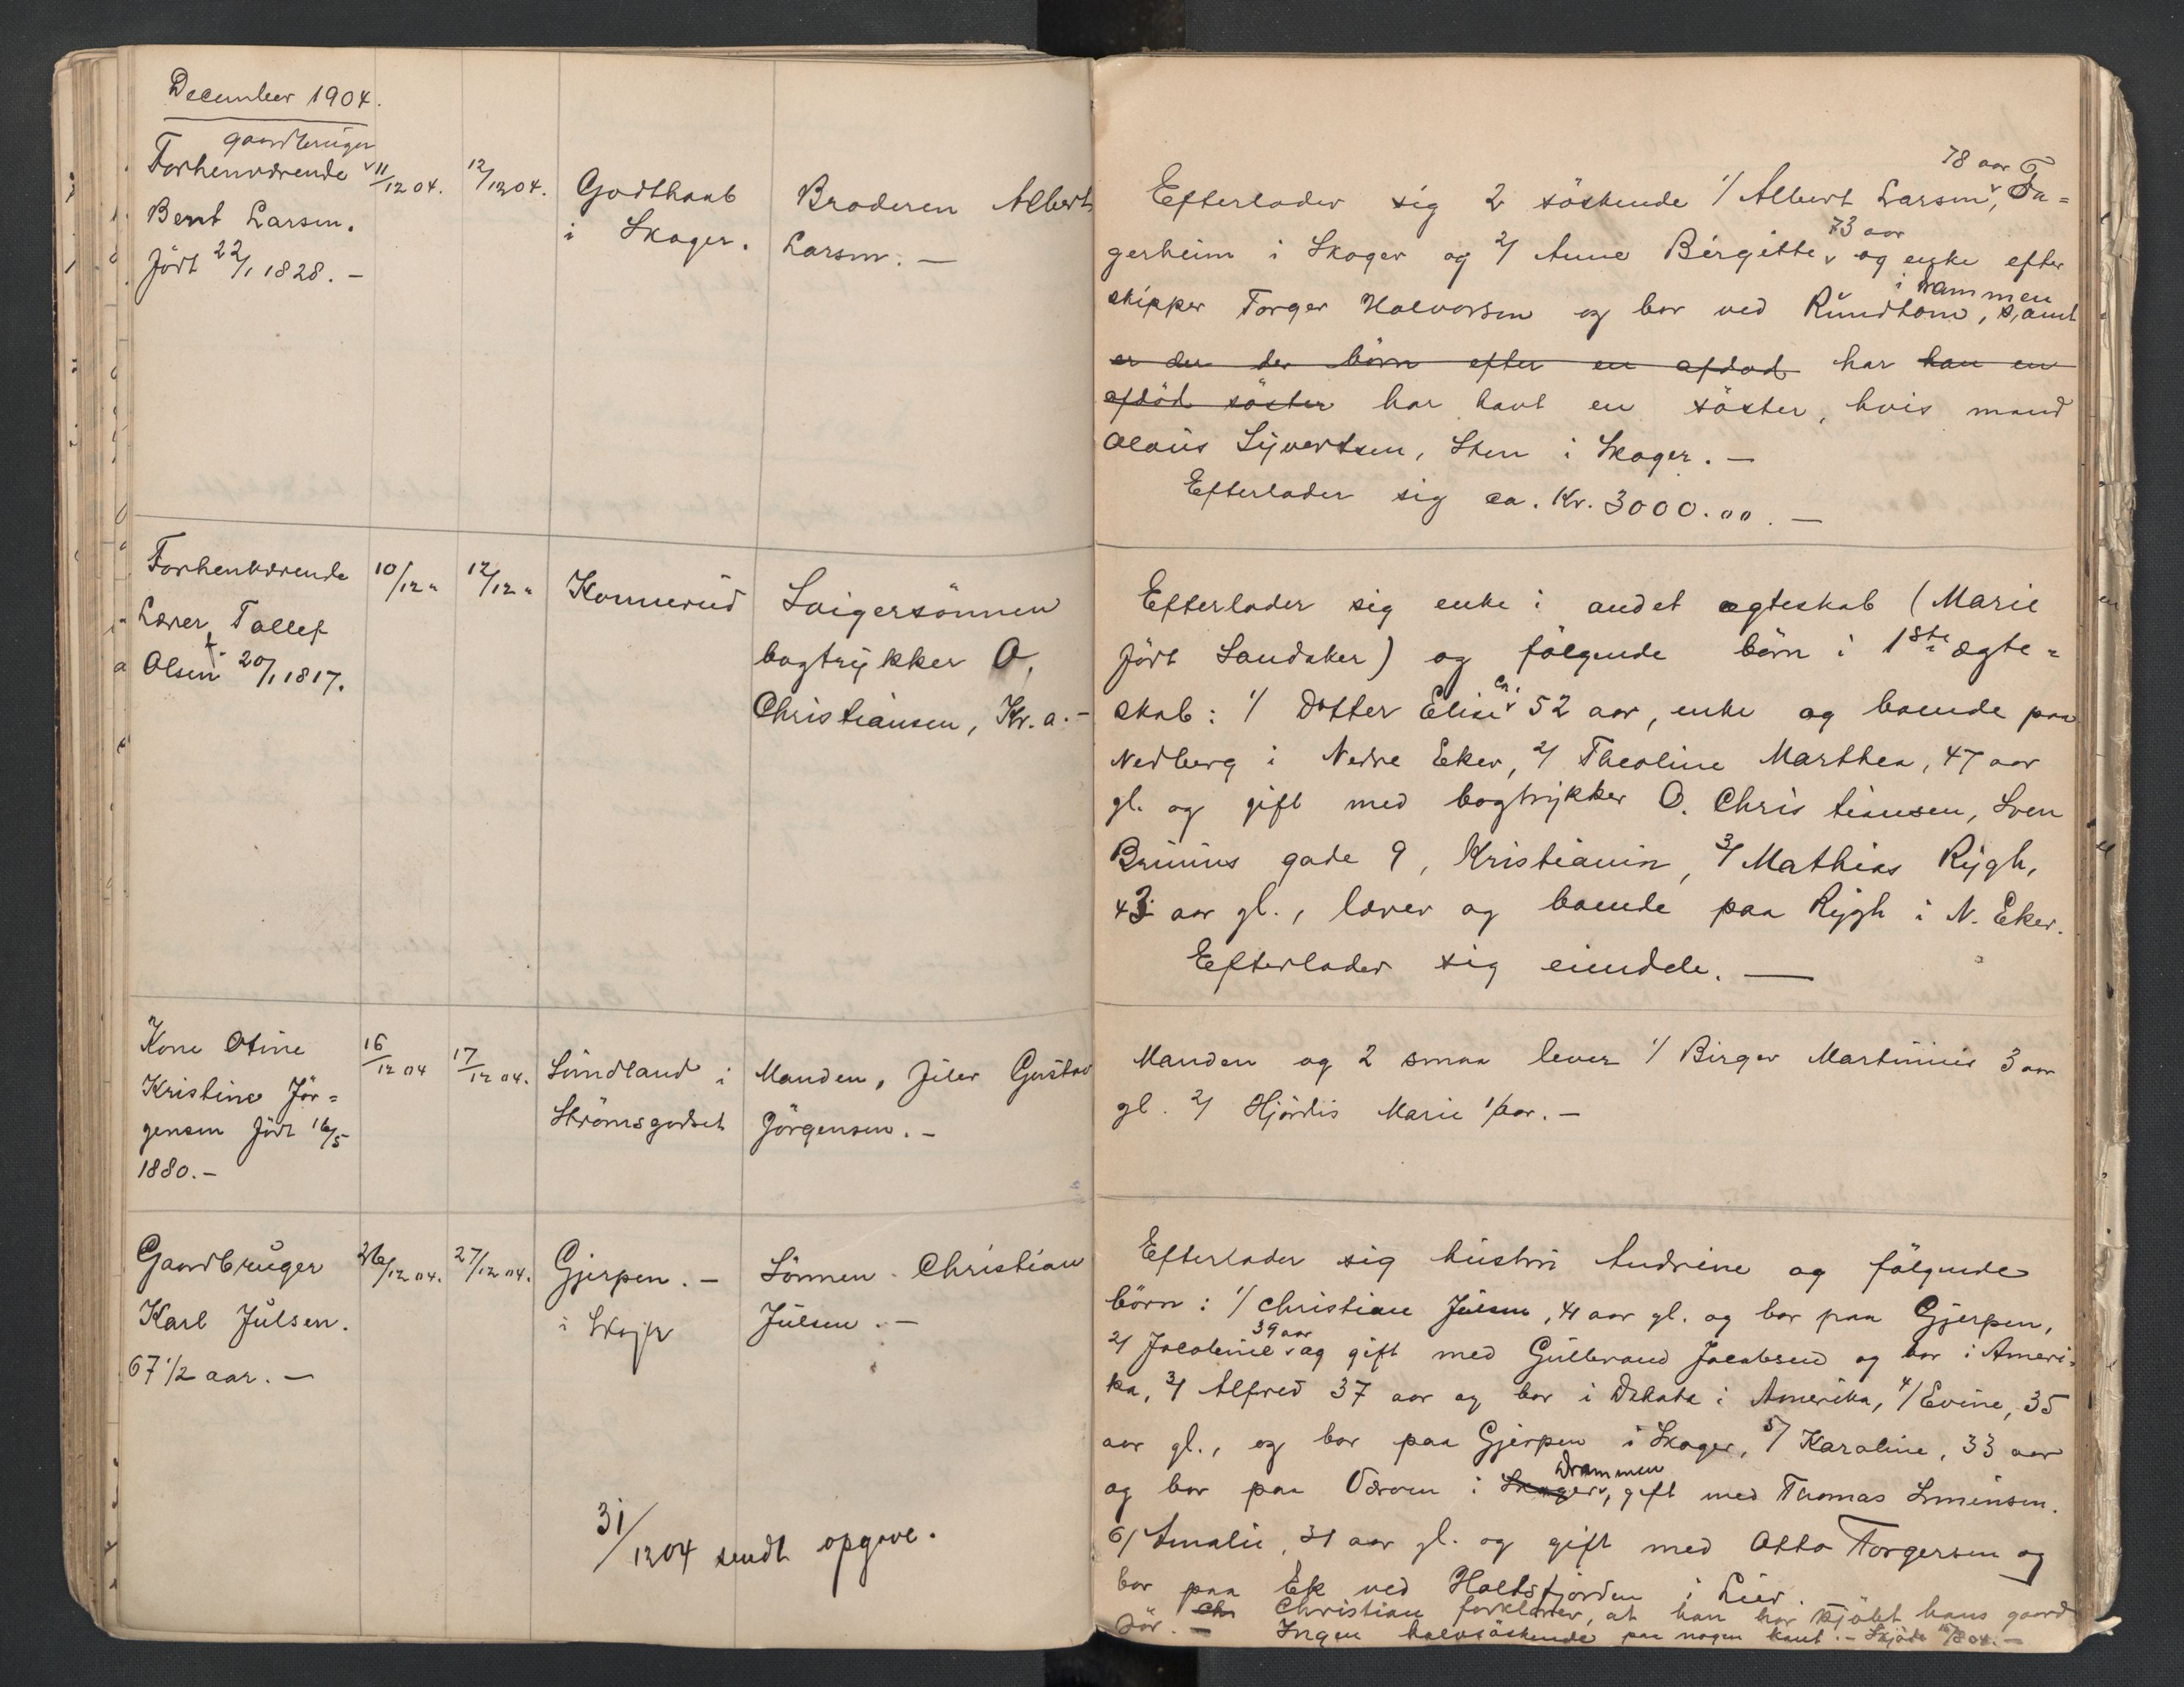 December 1904.
gaardbruger
Forhenværende 11/12 04. 12/12 04. Godthaab Broderen Albert
Bernt Larsen. i Skoger. Larsen. —
født 22/1 1828. —
78 aar
Efterlader sig 2 söskende 1/ Albert Larsen, Fa=
73 aar
gerheim i Skoger og 2/ Anne Birgitte og enke efter
i Drammen
skipper Torger Halvorsen og bor ved Rundtom, samt
er der der börn efter en afdöd har han en
afdöd söster har havt en söster, hvis mand
Olaus Syvertsen, Sten i Skoger. —
Efterlader sig ca. Kr. 3000.00. —
Forhenværende 10/12 " 12/12 " Konnerud Svigersönnen
Lærer Tollef bogtrykker O.
Olsen f. 20/1 1817. Christiansen, Kr.a. —
Efterlader sig enke i andet ægteskab (Marie
födt Landaker) og fölgende börn i 1ste ægte=
skab: 1/ Datter Elise ca. 52 aar, enke og boende paa
Nedberg i Nedre Eker, 2/ Theoline Marthea, 47 aar
gl. og gift med bogtrykker O. Christiansen, Sven
Bruuns gade 9, Kristiania, 3/ Mathias Rygh,
43 aar gl., lærer og boende paa Rygh i N. Eker.
Efterlader sig eiendele. —
Kone Otine 16/12 04 17/12 04. Lundland i Manden, filer Gustav
Kristine Jör= Strömsgodset Jörgensen. —
gensen födt 16/5
1880. —
Manden og 2 smaa lever 1/ Birger Martinius 3 aar
gl. 2/ Hjördis Marie 1 aar. —
Gaardbruger 26/12 04. 27/12 04. Gjerpen. — Sönnen Christian
Karl Julsen. i Skoger Julsen. —
67 1/2 aar. —
Efterlader sig hustru Andrine og fölgende
börn: 1/ Christian Julsen, 41 aar gl. og bor paa Gjerpen,
39 aar
2/ Jacobine og gift med Gulbrand Jacobsen og bor i Ameri=
ka, 3/ Alfred 37 aar og bor i Dakota i Amerika, 4/ Evine, 35
aar gl., og bor paa Gjerpen i Skoger, 5/ Karoline, 33 aar
Drammen
og bor paa Øvren i Skoger, gift med Thomas Simensen.
6/ Amalie, 31 aar gl. og gift med Otto Torgersen og
bor paa Ek ved Holtsfjorden i Lier.
Ch Christian forklarer, at han har kjöbt hans gaard
för. — Ingen halvsöskende paa nogen kant. — Skjöde 04. —
31/12 04 sendt opgave.